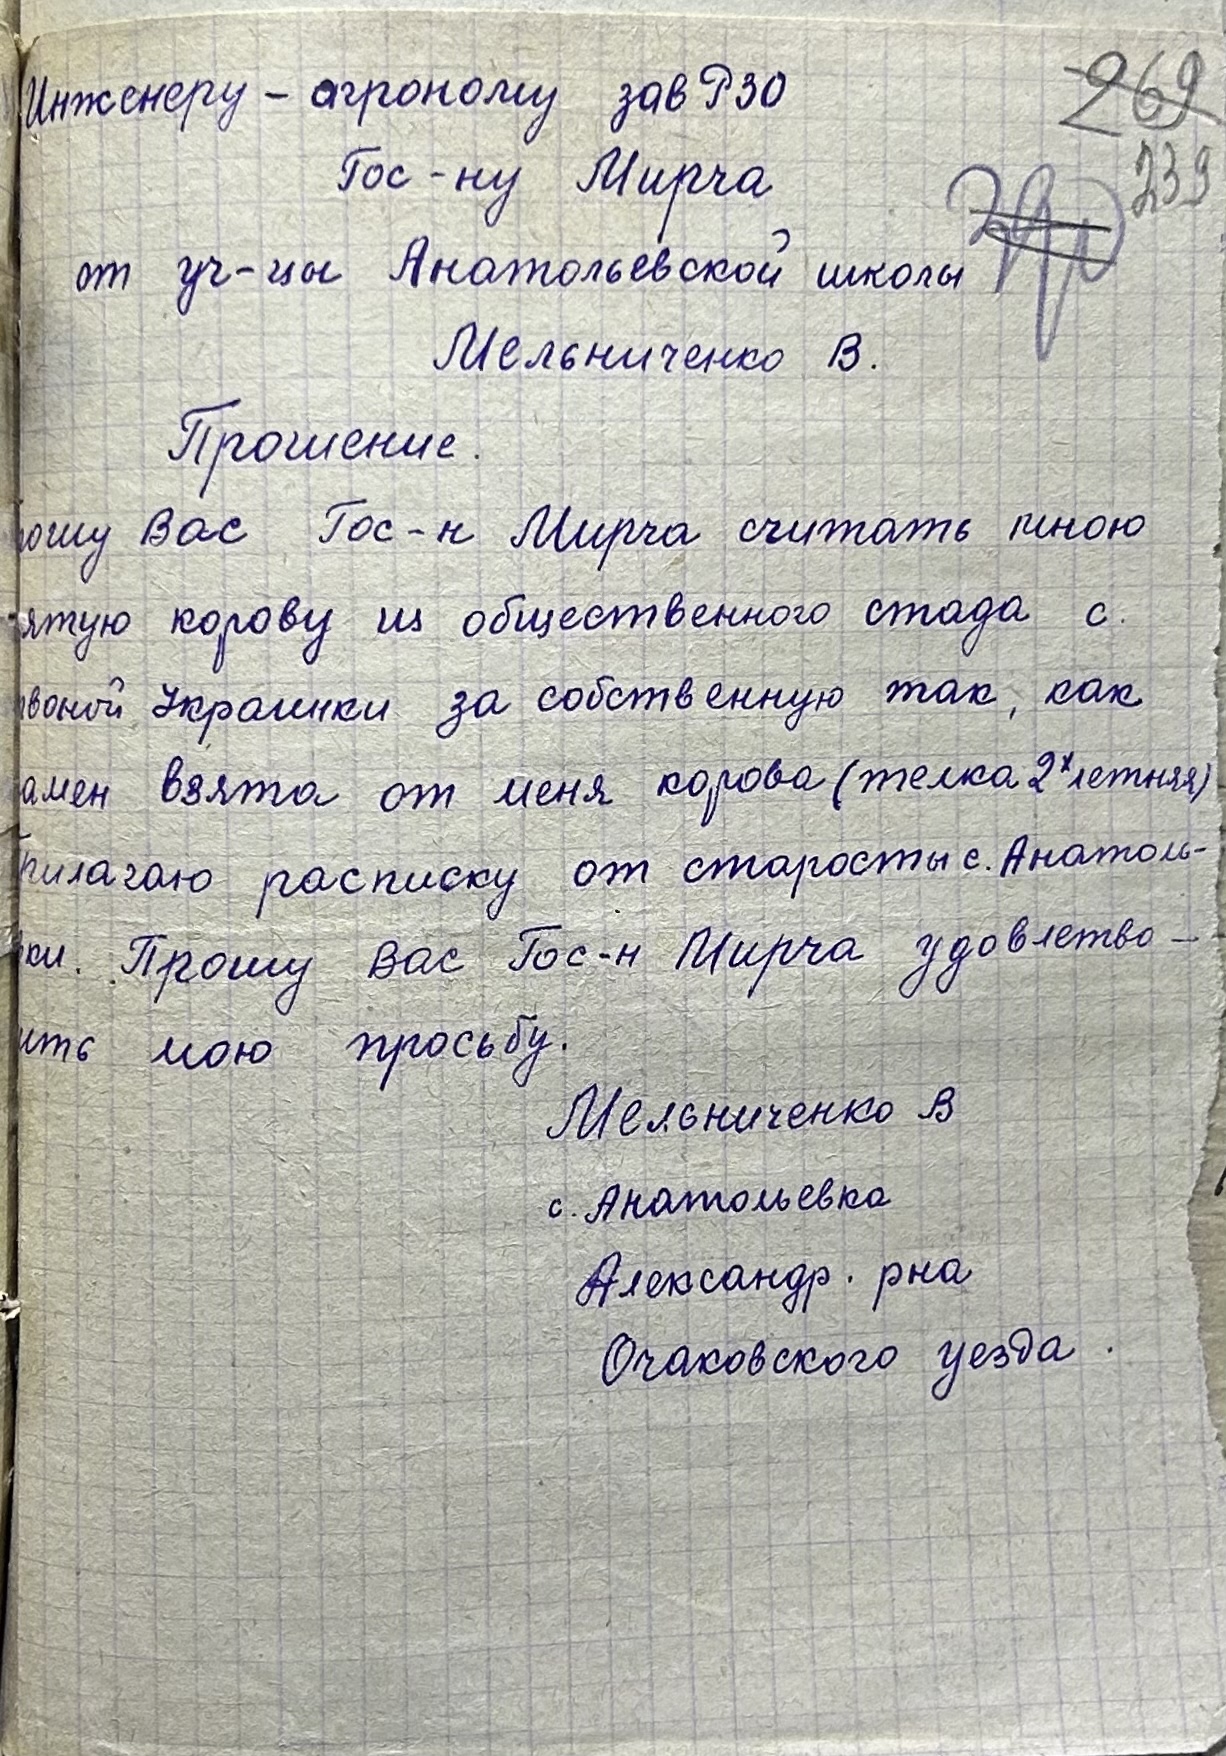 Инженеру - агроному зав РЗО
269
Гос-ну Мирча
239
от уч-цы Анатольевской школы
Мельниченко В.
Прошение.
ошу Вас Гос-н Мирча считать мною
ятую корову из общественного стада с.
воной Украинки за собственную так, как
амен взята от меня корова (телка 2х летняя)
рилагаю расписку от старосты с. Анатоль-
ки. Прошу Вас Гос-н Мирча удовлетво-
ить мою просьбу.
Мельниченко В
с. Анатольевка
Александр. рна
Очаковского уезда.